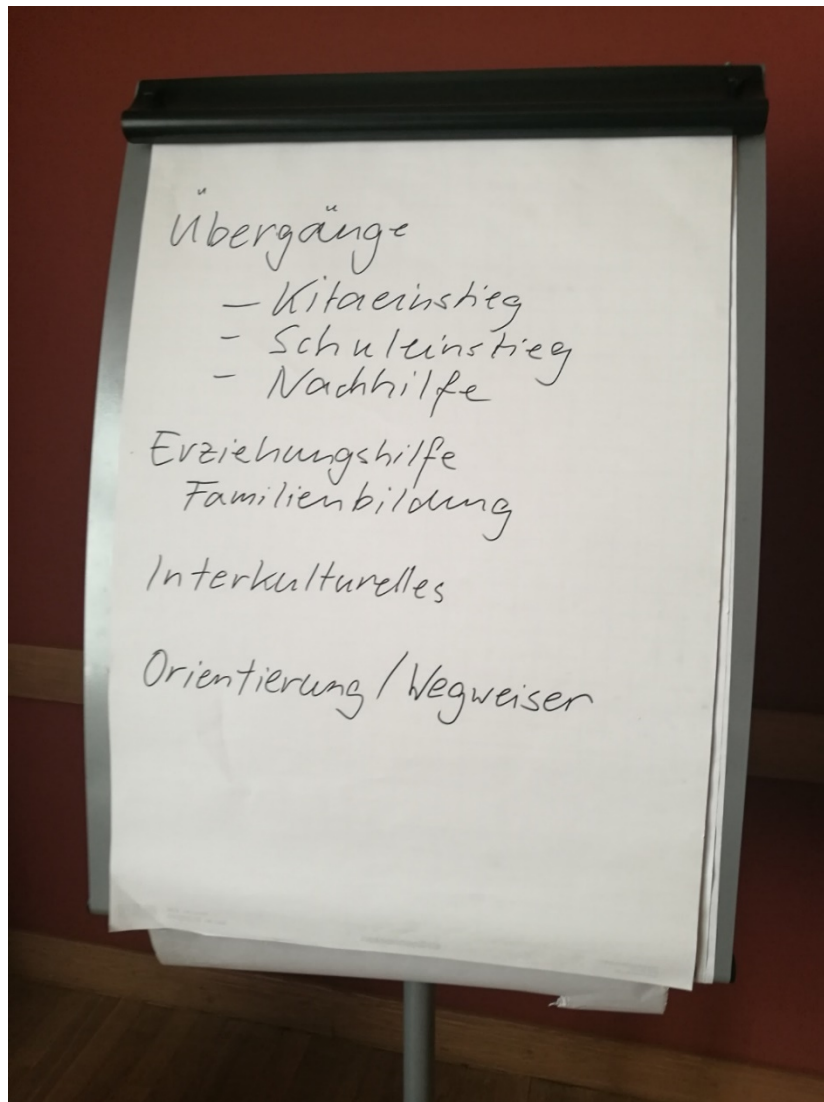 Übergänge
– Kitaeinstieg
– Schuleinstieg
– Nachhilfe
Erziehungshilfe
Familienbildung
Interkulturelles
Orientierung / Wegweiser